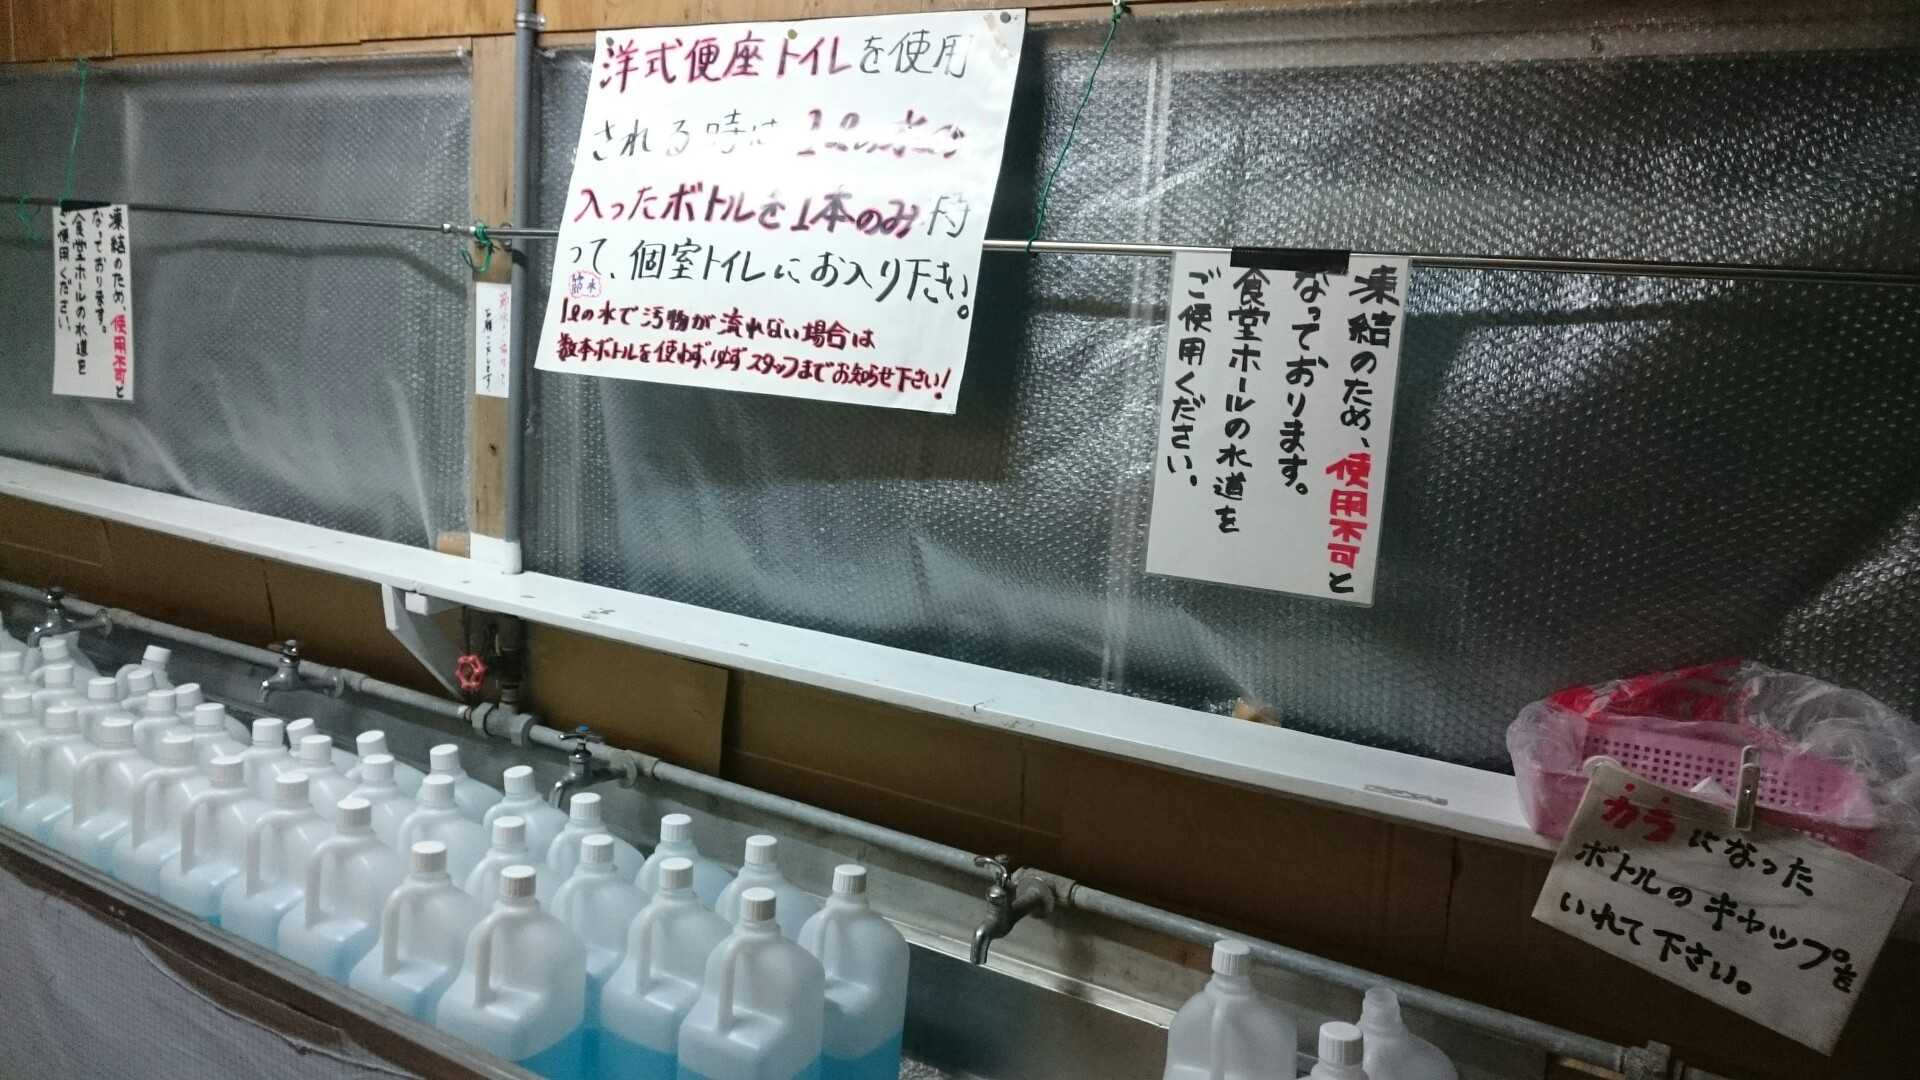 洋式便座トイレを使用
される時は 1ℓの水の
入ったボトルを1本のみ持
って、個室トイレにお入り下さい。
節水
1ℓの水で汚物が流れない場合は
数本ボトルを使わず、必ずスタッフまでお知らせ下さい!
凍結のため、使用不可と
なっております。
食堂ホールの水道を
ご使用ください。
凍結のため、使用不可と
なっております。
食堂ホールの水道を
ご使用ください。
カラになった
ボトルのキャップを
いれて下さい。